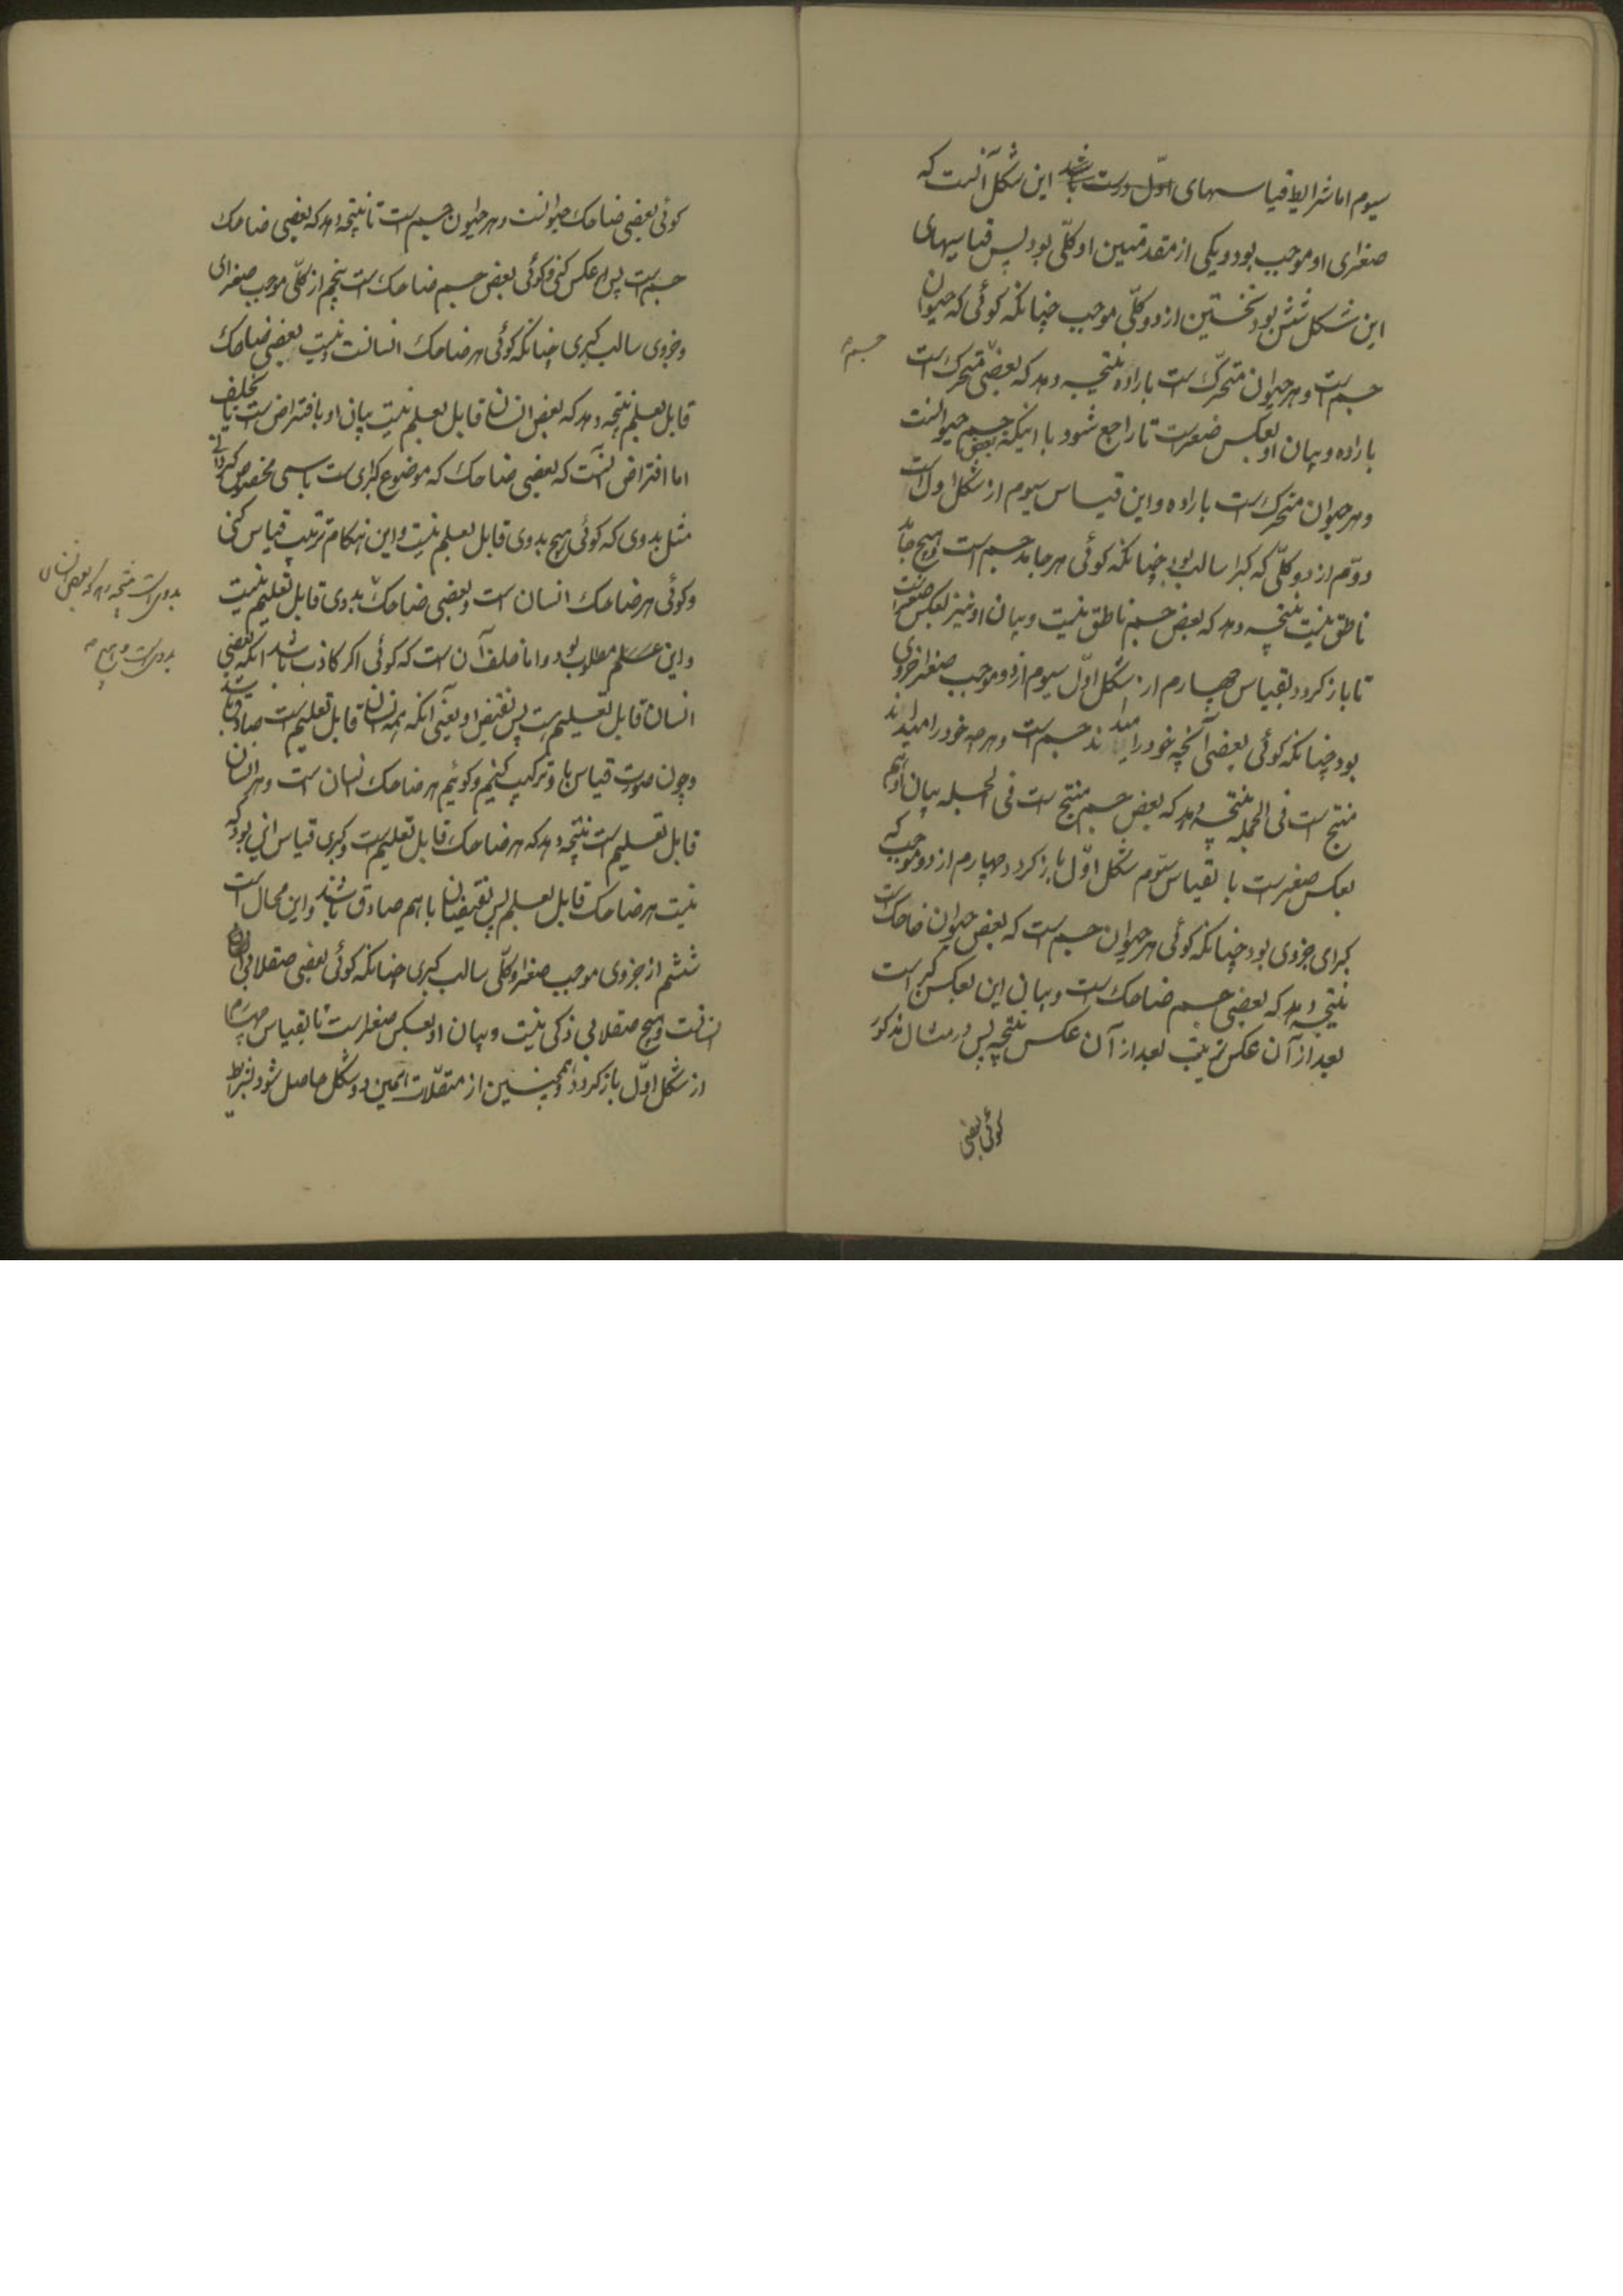 سیوم اما شرایط قیاسهای اوّل درست باشد این شکل آنست که
صغرای او موجب بود و یکی از مقدمتین او کلّی بود پس قیاسهای
این شکل شش بود نخستین از دو کلّی موجب چنانکه کوئی که حیوان
جسم است و هر حیوان متحرّک است باراده نتیجه دهد که بعضی متحرک است
جسم
باراده و بیان او بعکس صغریست تا راجع شود با اینکه بعض جسم حیوانست
و هر حیوان متحرک است باراده و این قیاس سیوم از شکل اول است
دوّم از دو کلّی که کبرا سالب بود چنانکه کوئی هر جامد جسم است و هیچ جامد
ناطق نیست نتیجه دهد که بعض جسم ناطق نیست و بیان او نیز بعکس صغریست
تا باز کردد بقیاس چهارم از شکل اوّل سیوم از دو موجب صغرا جزوی
بود چنانکه کوئی بعضی آنچه خود را میداند جسم است و هرچه خود را میداند
منتج است فی الجمله نتیجه دهد که بعض جسم منتج است فی الجمله بیان او هم
بعکس صغریست با بقیاس سوّم شکل اوّل باز کردد چهارم از دو موجب که
کبرای جزوی بود چنانکه کوئی هر حیوان جسم است که بعض حیوان ضاحک است
نتیجه دهد که بعضی جسم ضاحک است و بیان این بعکس کبراست
بعد از آن عکس ترتیب بعد از آن عکس نتیجه پس در مثال مذکور
کوئی بعضی
کوئی بعضی ضاحک حیوانست و هر حیوان جسم است تا نتیجه دهد که بعضی ضاحک
جسم است پس عکس کنی و کوئی بعض جسم ضاحک است پنجم از کلّی موجب صغرای
و جزوی سالب کبری چنانکه کوئی هر ضاحک انسانست و نیست بعضی ضاحک
قابل تعلم نتیجه دهد که بعض انسان قابل تعلم نیست بیان او بافتراض است یا بخلف
اما افتراض آنست که بعضی ضاحک که موضوع کبرای است باسمی مخصوص کردانی
مثل بدوی که کوئی هیچ بدوی قابل تعلم نیست و این هنکام ترتیب قیاس کنی
و کوئی هر ضاحک انسان است و بعضی ضاحک بدوی قابل تعلیم نیست
بدویست نتیجه دهد که بعض انسان
بدویست و هیچ
و این عسلم مطلوب بود و اما خلف آن است که کوئی اکر کاذب باشد انکه بعضی
انسان قابل تعلیم است پس نقیض او یعنی آنکه همه انسان قابل تعلیم است صادق باشد
و چون صورت قیاس با او ترکیب کنیم و کوئیم هر ضاحک انسان است و هر انسان
قابل تعلیم است نتیجه دهد که هر ضاحک قابل تعلیم است و کبری قیاس انی بود که
نیست هر ضاحک قابل تعلم پس نقیضان باهم صادق باشند و این محال است
ششم از جزوی موجب صغرا و کلّی سالب کبری چنانکه کوئی بعضی صقلابی
انسانست و هیچ صقلابی ذکی نیست و بیان او بعکس صغراست تا بقیاس چهارم
از شکل اوّل باز کردد و همچنین از متصّلات همین دو شکل حاصل شود بشرط